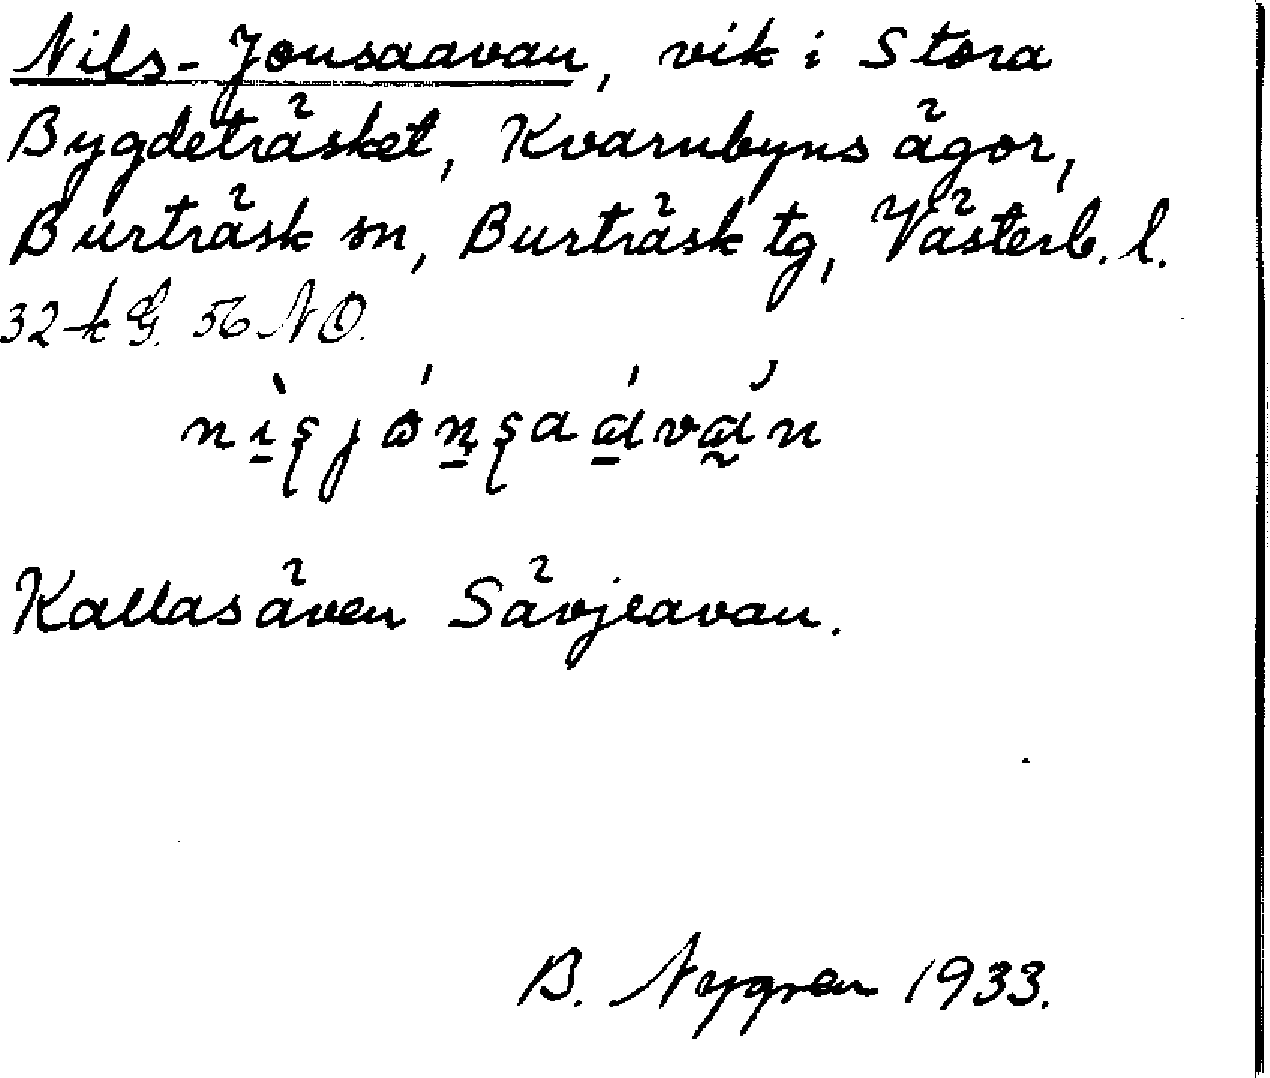 Nils-Jonsaavan, vik i Stora
Bygdeträsket, Kvarnbyns ägor,
Burträsk sn, Burträsk tg, Västerb. l.
32 k G. 56 NO.
Kallas även Sävjeavan.
B. Nygren 1933.